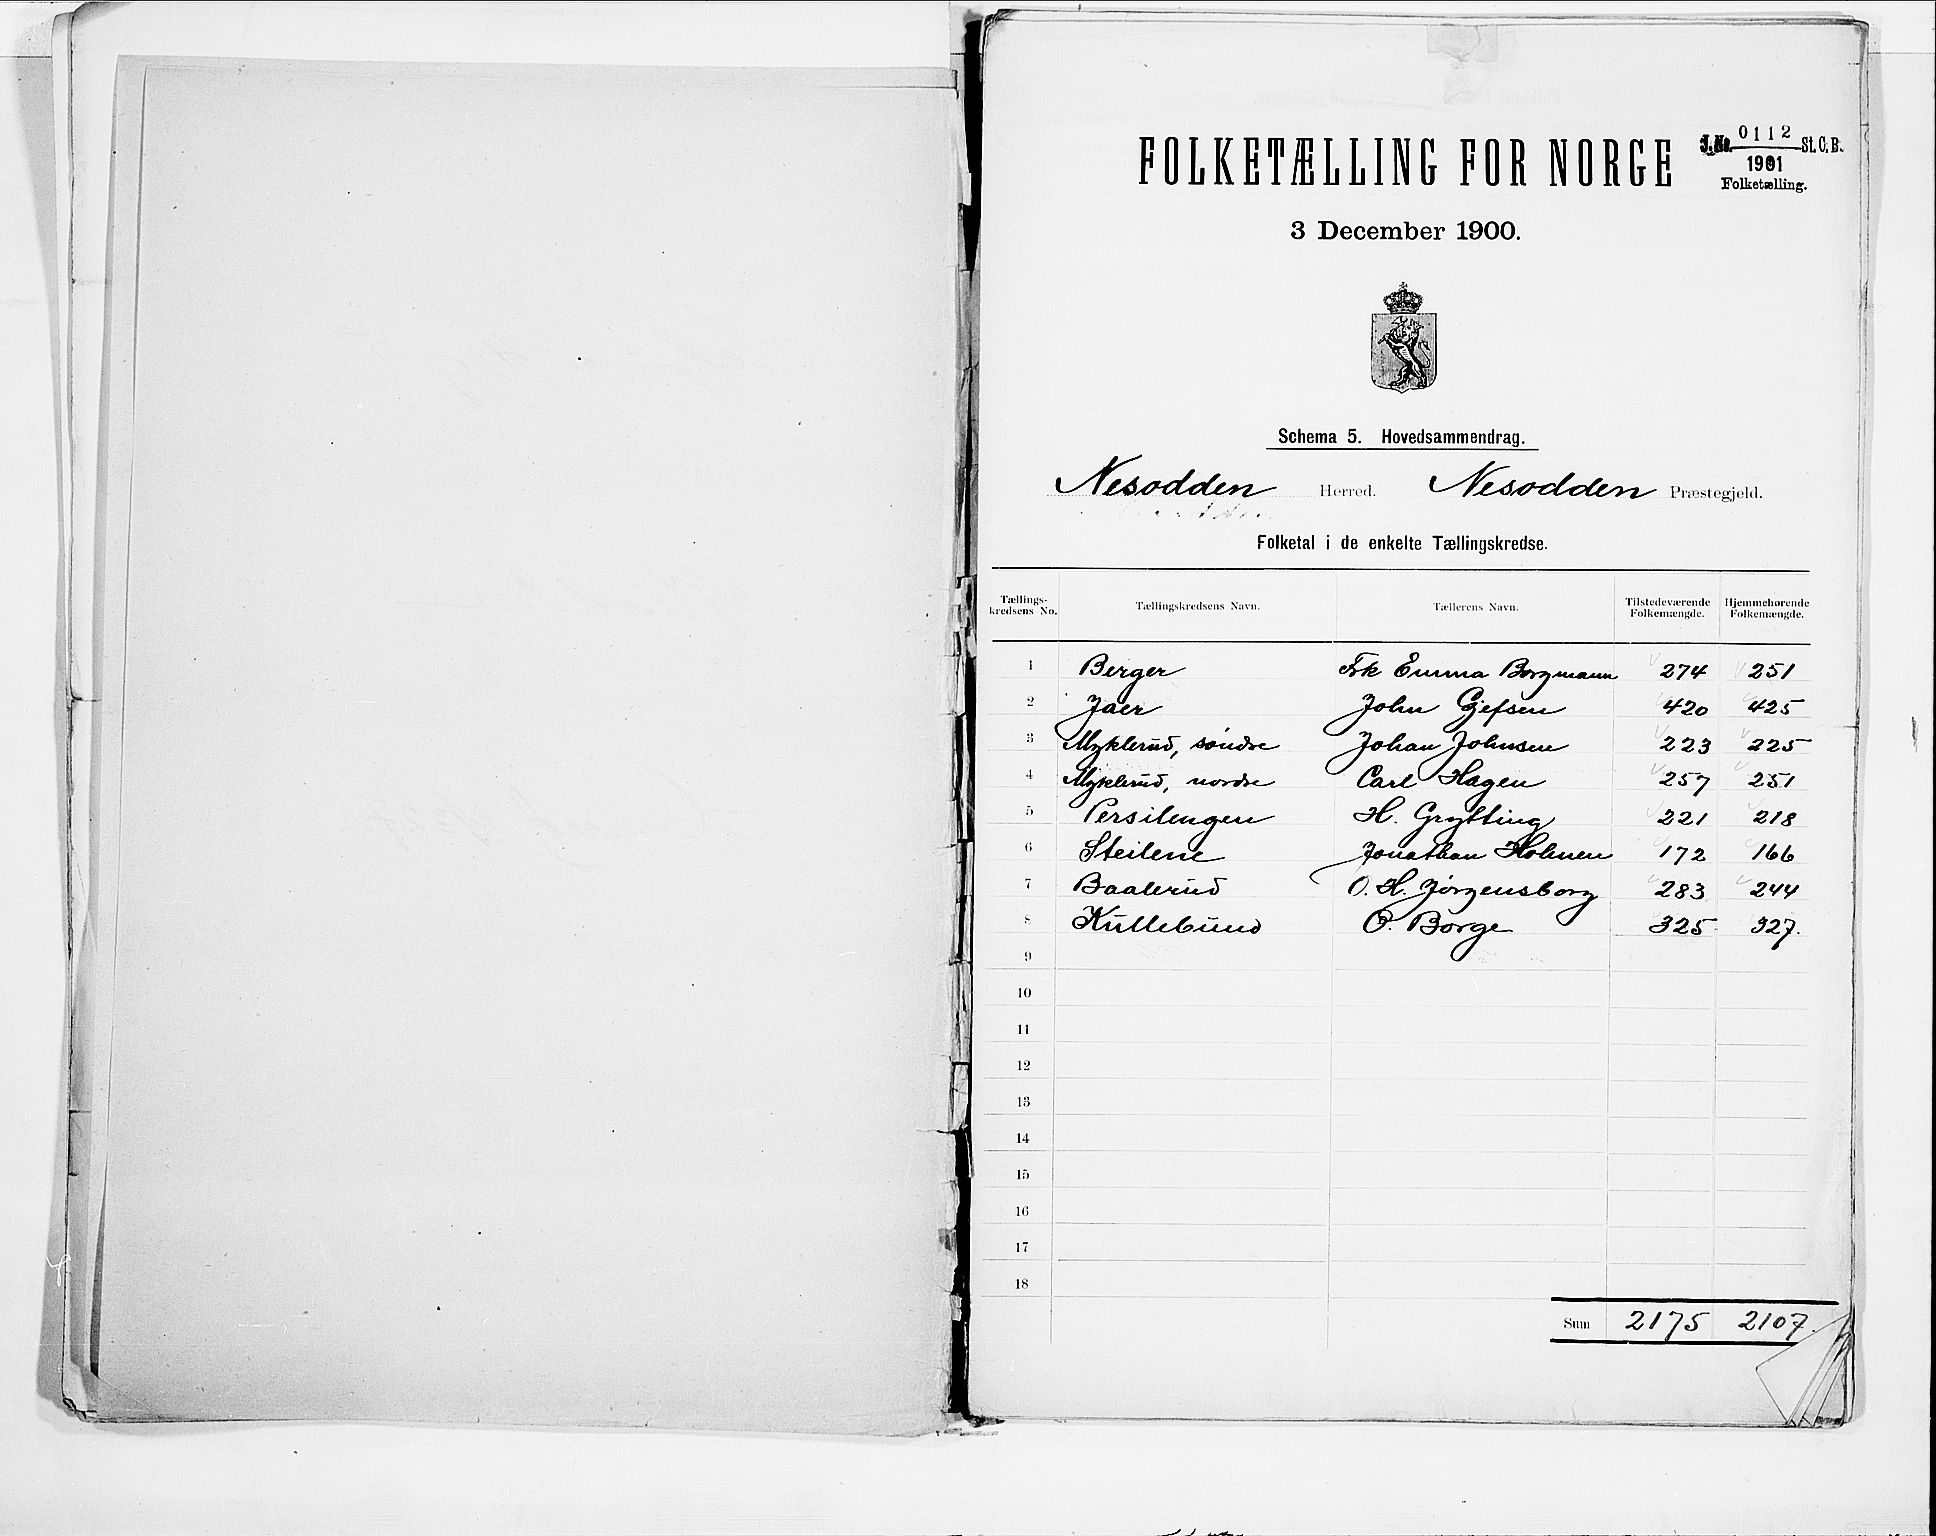 FOLKETÆLLING FOR NORGE
J. No. 0112 St. C. B.
1901
Folketælling.
3 December 1900.
Schema 5. Hovedsammendrag.
Nesodden Herred. Nesodden Præstegjeld.
Folketal i de enkelte Tællingskredse.
Tællings-kredsens No. Tællingskredsens Navn. Tællerens Navn. Tilstedeværende Folkemængde. Hjemmehørende Folkemængde.
1 Berger Frk Emma Borgmann 274 251
2 Jaer John Gjefsen 420 425
3 Myklerud, søndre Johan Johnsen 223 225
4 Myklerud, nordre Carl Hagen 257 251
5 Persilengen H. Grytting 221 218
6 Steilene Jonathan Holmen 172 166
7 Baalerud O. H. Jørgensborg 283 244
8 Kullebund O. Borge 325 327.
9
10
11
12
13
14
15
16
17
18
Sum 2175 2107.